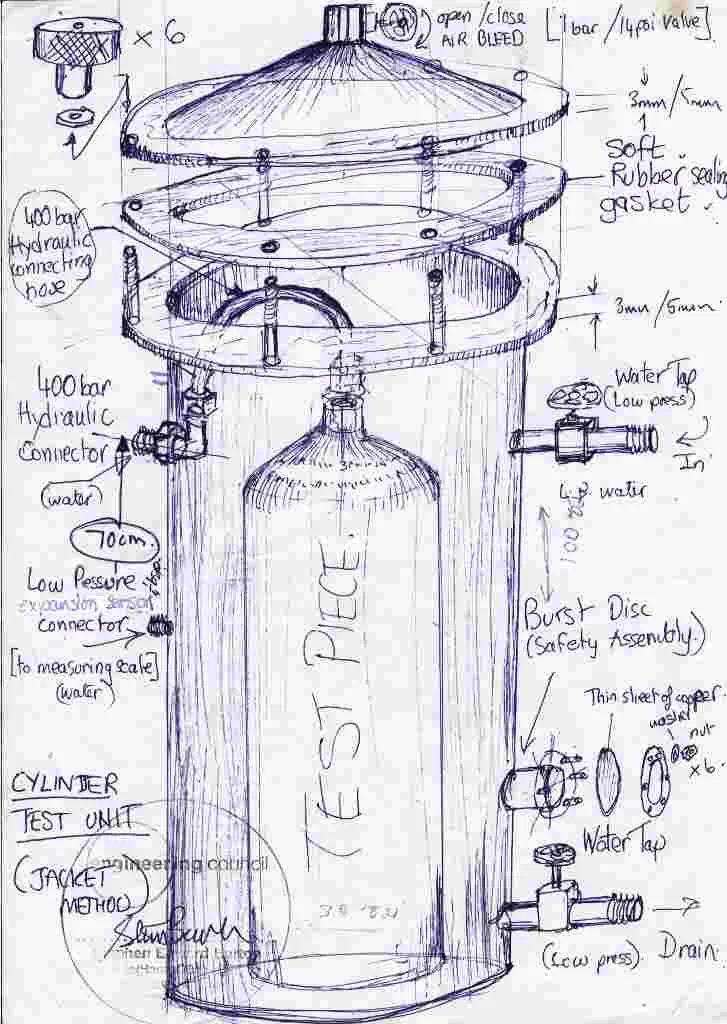 x 6
open/close
AIR BLEED
[1 bar/14psi valve]
3mm/5mm
soft
Rubber sealing
gasket.
400 bar
Hydraulic
connecting
hose
3mm/5mm.
400 bar
Hydraulic
Connector
(water)
Water Tap
(Low press)
In
L.P. water
70cm.
Low Pressure
expansion sensor
connector
[to measuring scale]
(water)
100
TEST PIECE.
Burst Disc
(Safety Assembly.)
Thin sheet of copper.
washer
nut
x6.
CYLINDER
TEST UNIT
(JACKET
METHOD)
engineering council
Water Tap
(Low press).
Drain.